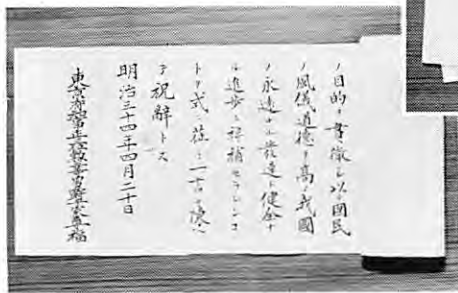 ノ目的ヲ貫徹シ以テ國民
ノ風儀道徳ヲ高メ我國
ノ永遠ナル發達ト健全ナ
ル進歩ニ裨補セラレンコ
トヲ式ニ莅ミ一言ヲ陳ヘ
テ祝辭トス
明治三十四年四月二十日
東京府知事男爵千家尊福